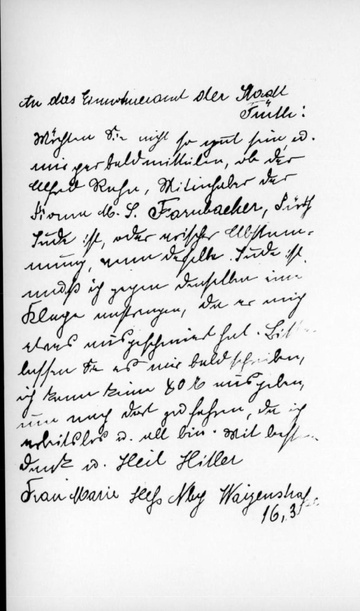 An das Einwohneramt der Stadt
Fürth!
Möchten Sie nicht so gut sein u.
mir gar bald mitteilen, ob der
Alfred Hahn, Mitinhaber der
Firma M. S. Farnbacher, Fürth
Jude ist, oder arischer Abstam-
mung, wenn derselbe Jude ist
muß ich gegen denselben eine
Klage anstrengen, da er mich
etwas ausgeschmiert hat. Bitte
lassen Sie es mir bald schreiben,
ich kann keine 80 ausgeben,
um nach dort zu fahren, da ich
arbeitslos u. alt bin. Mit best
Dank u. Heil Hitler
Frau Marie Nbg Waizenstraße
16, 3